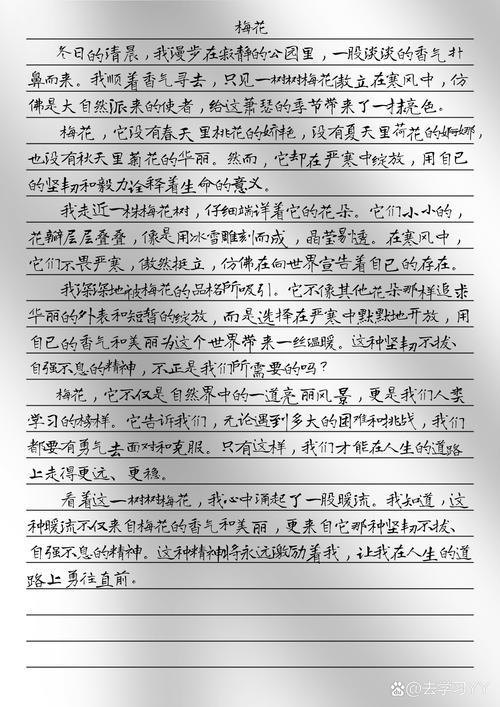 梅花
冬日的清晨，我漫步在寂静的公园里，一股淡淡的香气扑
鼻而来。我顺着香气寻去，只见一树树梅花傲立在寒风中，仿
佛是大自然派来的使者，给这萧瑟的季节带来了一抹亮色。
梅花，它没有春天里桃花的娇艳，没有夏天里荷花的婀娜，
也没有秋天里菊花的华丽。然而，它却在严寒中绽放，用自己
的坚韧和毅力诠释着生命的意义。
我走近一株梅花树，仔细端详着它的花朵。它们小小的，
花瓣层层叠叠，像是用冰雪雕刻而成，晶莹易透。在寒风中，
它们不畏严寒，傲然挺立，仿佛在向世界宣告着自己的存在。
我深深地被梅花的品格所吸引。它不像其他花朵那样追求
华丽的外表和短暂的绽放，而是选择在严寒中默默地开放，用
自己的香气和美丽为这个世界带来一丝温暖。这种坚韧不拔、
自强不息的精神，不正是我们所需要的吗？
梅花，它不仅是自然界中的一道亮丽风景，更是我们人类
学习的榜样。它告诉我们，无论遇到多大的困难和挑战，我们
都要有勇气去面对和克服。只有这样，我们才能在人生的道路
上走得更远、更稳。
看着这一树树梅花，我心中涌起了一股暖流。我知道，这
种暖流不仅来自梅花的香气和美丽，更来自它那种坚韧不拔、
自强不息的精神。这种精神将永远激励着我，让我在人生的道
路上勇往直前。
@去学习丫丫